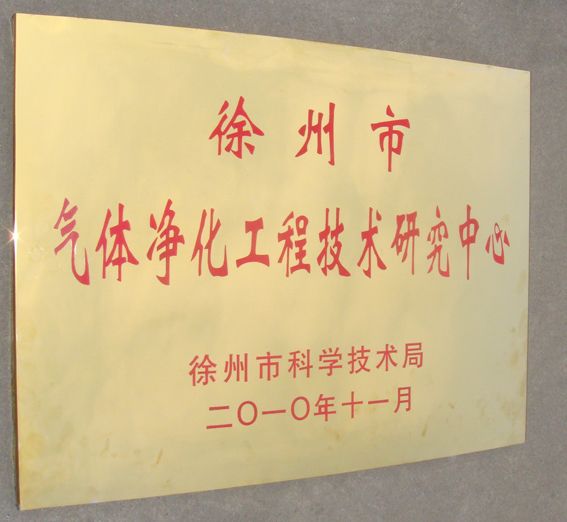 徐州市
气体净化工程技术研究中心
徐州市科学技术局
二〇一〇年十一月